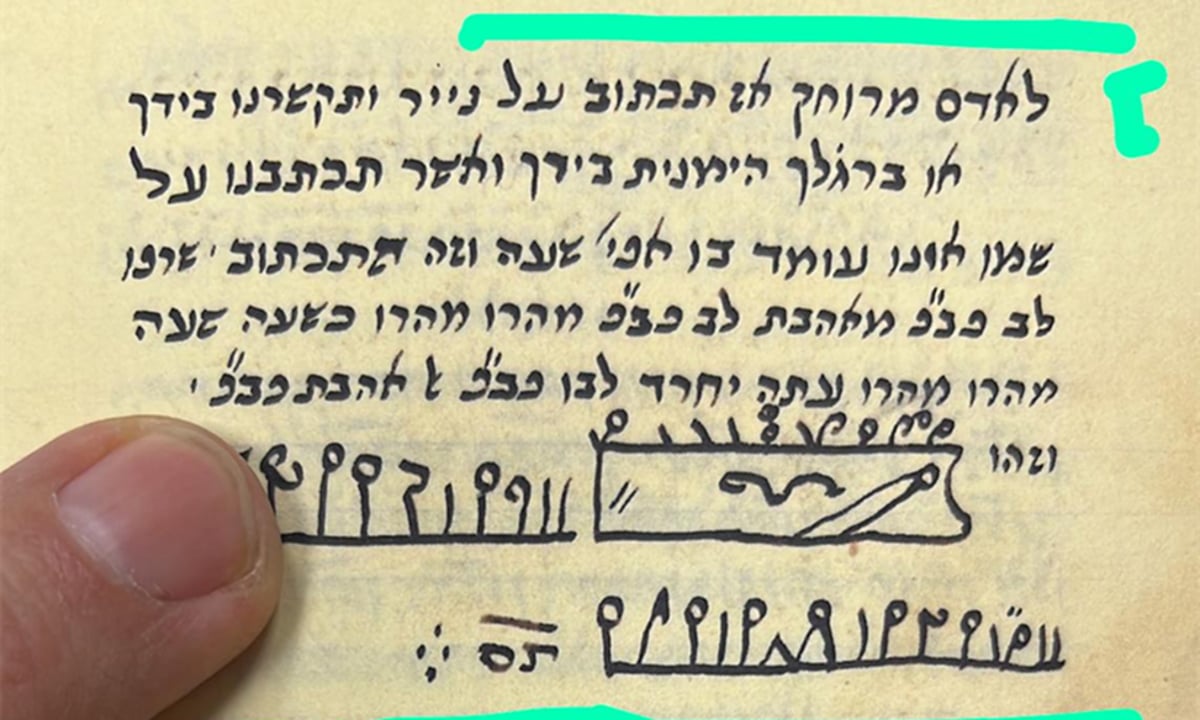 לאדם מרוחק אז תכתוב על נייר ותקשרנו בידך
או ברגלך הימנית בידך ואשר תכתבנו על
שמן אינו עומד בו אפי׳ שעה וזה התכתוב שרפו
לב פב״פ מאהבת לב פב״פ מהרו מהרו כשעה שעה
מהרו מהרו עתה יחרד לבו פב״פ לאהבת פב״פ
וזהו
תם